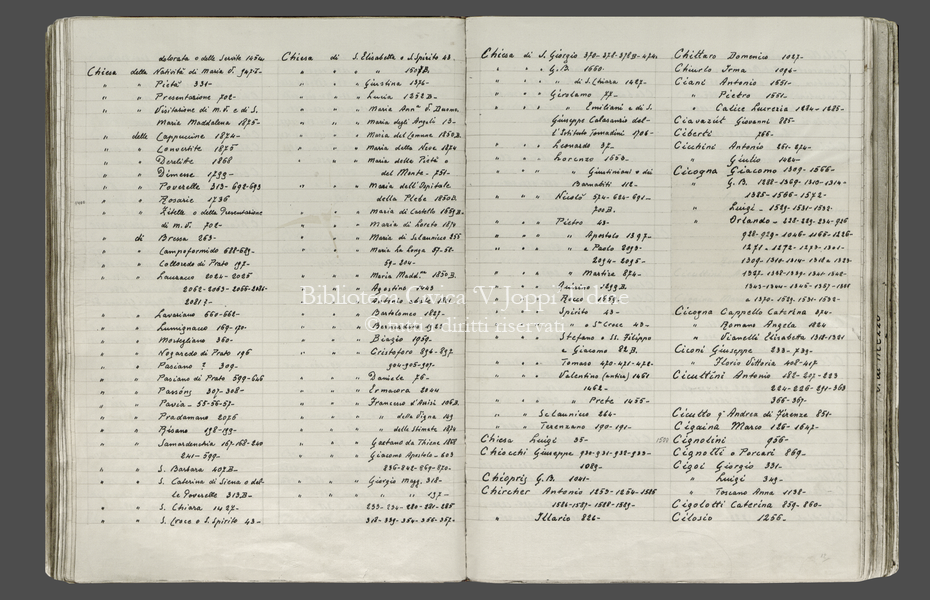 dolorata o delle Servite 1454
Chiesa della Natività di Maria V. 947B-
" " Pietà 331-
" " Presentazione 702-
" " Visitazione di M.V. e di S.
Maria Maddalena 1875-
" delle Cappuccine 1874-
" " Convertite 1875
" " Derelite 1868
" " Dimesse 1799-
" " Poverelle 313-692-693
" " Rosarie 1736
" " Zitelle o della Presentazione
di M.V. 702-
" di Bressa 263-
" " Campoformido 628-629-
" " Colloredo di Prato 197-
" " Lauzacco 2024-2025
2062-2063-2066-2081-
" " Lavariano 660-662-
" " Lumignacco 169-170-
" " Mortegliano 360-
" " Nogaredo di Prato 196
" " Pasiano ? 309-
" " Pasiano di Prato 599-646
" " Passons 307-308-
" " Pavia- 55-56-57-
" " Pradamano 2076
" " Risano 198-199-
" " Samardenchia 167-168-240
241-599-
" " S. Barbara 407B-
" " S. Caterina di Siena o del-
le Poverelle 313B-
" " S. Chiara 1427-
" " S. Croce o S. Spirito 43-
Chiesa di S. Elisabetta o S. Spirito 43-
" " " "
" " " Giustina 1374-
" " " Lucia 1252B-
" " "
" " " Maria degli Angeli 13-
" " "
" " " Maria della Neve 1874
" " " Maria della Pietà o
del Monte- 751-
" " " Maria dell'Ospitale
della Plebe 1850B-
" " " Maria di Castello 1669B-
" " " Maria di Loreto 1870
" " " Maria di Selaunicco 255
" " " Maria La Longa 57-58-
59-204-
" " " 1850B.
" " " Agostino 1443
" " " Bartolomeo 1827-
" " " Biagio 1959-
" " " Cristoforo 896-897
904-905-907-
" " " Daniele 76-
" " " Ermacora 2044
" " " Francesco d'Assisi 106B-
" " " " della Vigna 149
" " " " delle Stimate 1874
" " " Gaetano da Thiene 1868
" " " Giacomo Apostolo- 603
836-842-869-870-
" " " Giorgio Magg. 318-
" " " " 197-
233-234-280-281-285
318-339-354-356-357-
Chiesa di S. Giorgio 370-378-378B-474-
" " " G.B. 1660-
" " " " di S. Chiara 1427-
" " " Girolamo 77-
" " " " Emiliani e di S.
Giuseppe Calasanzio del-
l'Istituto Tomadini 1706-
" " " Leonardo 37-
" " " Lorenzo 1553-
" " " " Giustiniani o dei
Barnabiti 112-
" " " Nicolò 574-624-691-
702B-
" " " Pietro 43-
" " " " Apostolo 1397-
" " " " e Paolo 2093-
2094-2095-
" " " " Martire 874-
" " " Quirino 1899B-
" " " Rocco 1653-
" " " Spirito 43-
" " " " o Sta Croce 43-
" " " Stefano e SS. Filippo
e Giacomo 82B.
" " " Tomaso 470-471-472-
" " " Valentino (antica) 1461
1462-
" " " " Prete 1455-
" " Selaunicco 264-
" " Terenzano 190-191-
Chiesa Luigi 35-
Chiocchi Giuseppe 930-931-932-933-
1089-
Chiopris G.B. 1041-
Chircher Antonio 1253-1254-1586
1586-1587-1588-1589-
" Illario 826-
Chittaro Domenico 1027-
Chiurlo Irma 1096-
Ciani Antonio 1651-
" Pietro 1651-
" Calice Lucrezia 1284-1285-
Ciavazut Giovanni 885-
Ciberti 766-
Cicchini Antonio 261-274-
" Giulio 1424-
Cicogna Giacomo 1309-1566-
" G.B. 1288-1369-1310-1314-
1385-1566-1572-
" Luigi- 1529-1531-1532-
" Orlando- 228-229-234-926
928-929-1046-1168-1226-
1271-1272-1273-1301-
1309-1310-1314-1318 a 1323-
1327-1338-1339-1341-1342-
1343-1344-1345-1367-1368
a 1370-1529-1531-1532-
Cicogna Cappello Caterina 274-
" Romano Angela 1224
" Vianelli Elisabetta 1318-1321
Ciconi Giuseppe 233-739-
" Florio Vittoria 408-417-
Cicuttini Antonio 182-217-223
224-226-291-363
366-367-
Cicutto q. Andrea di Firenze 851-
Cigaina Marco 126-1647-
Cignolini 956-
Cignotti o Porcari 869-
Cigoi Giorgio 331-
" Luigi 349-
" Toscano Anna 1138-
Cigolotti Caterina 859-860-
Cilosio 1266-
Biblioteca Civica "V. Joppi" Udine
© tutti i diritti riservati